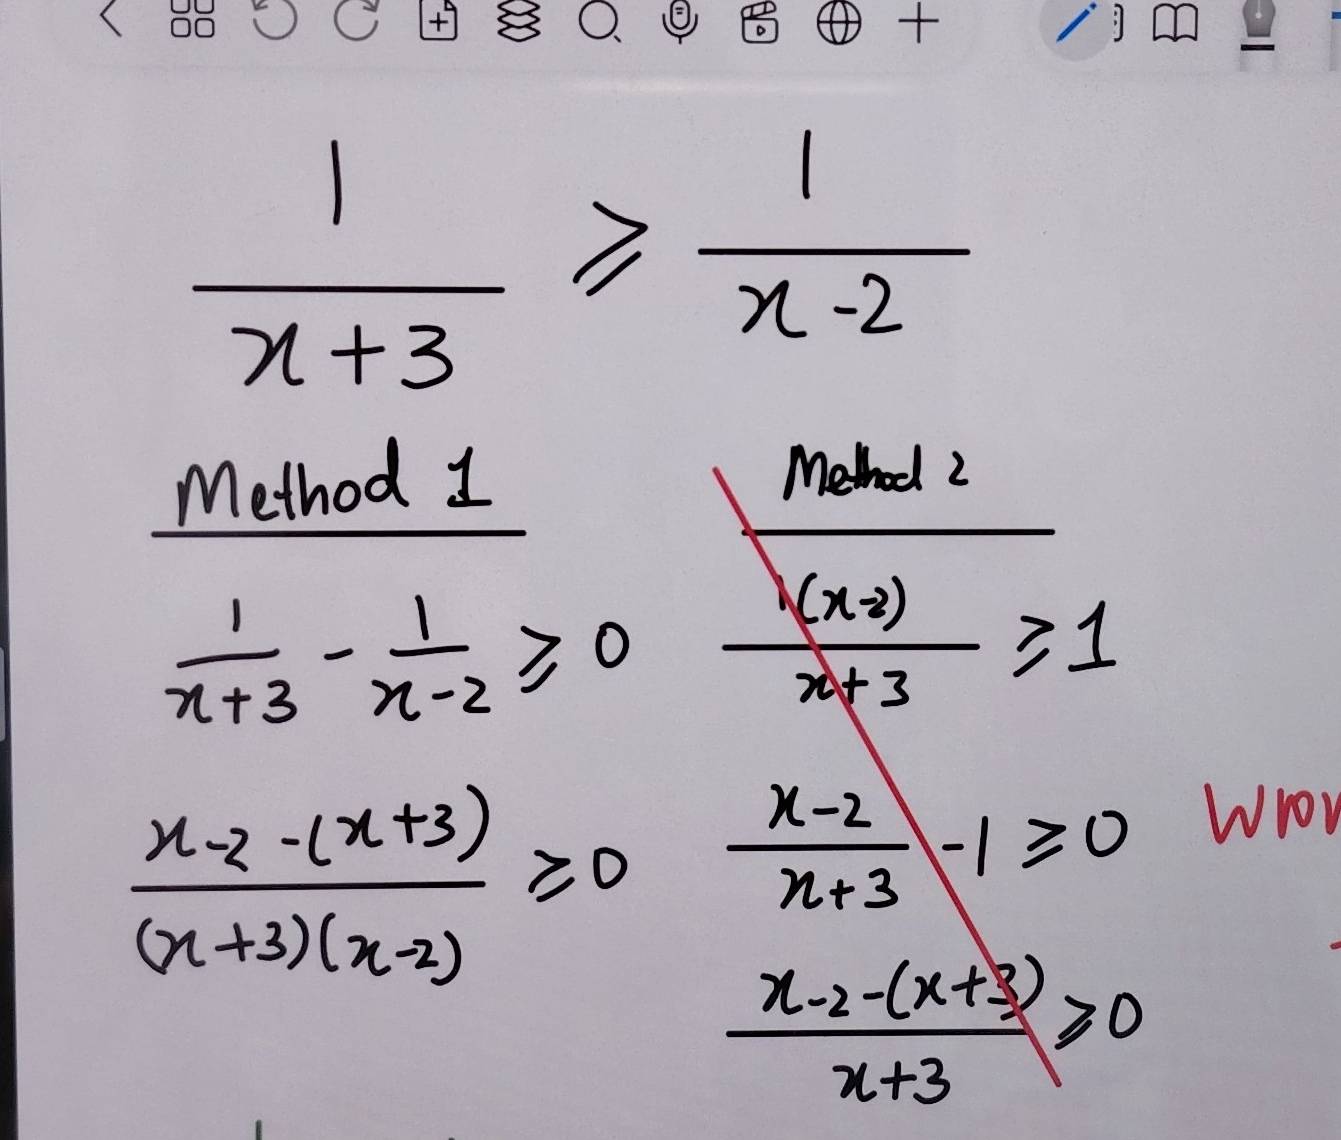 1/(x+3) ⩾ 1/(x-2)
Method 1
1/(x+3) - 1/(x-2) ⩾ 0
(x-2-(x+3))/((x+3)(x-2)) ⩾ 0
Method 2
1(x-2)/(x+3) ⩾ 1
(x-2)/(x+3) - 1 ⩾ 0
(x-2-(x+3))/(x+3) ⩾ 0